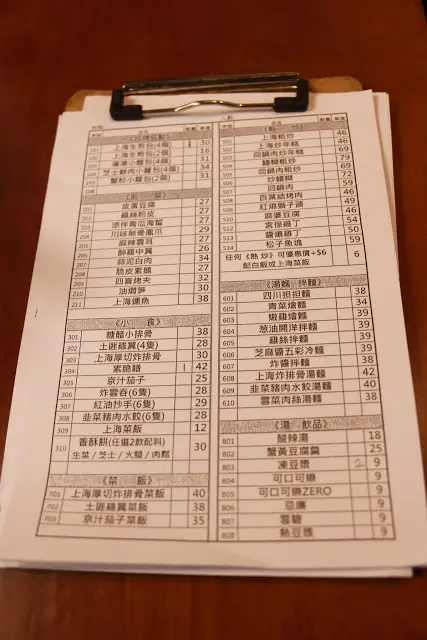 上海生煎包(4個) 1 30
上海生煎包(2個) 16
灌湯小籠包(4個) 31
芝士鮮肉小籠包(4個) 34
蟹粉小籠包(2個) 31
《前 菜》
201 皮蛋豆腐 27
202 雞絲粉皮 27
203 涼伴青瓜海蜇 27
204 川味無骨鳳爪 29
205 麻辣雲耳 27
206 醉雞中翼 26
207 蒜泥白肉 34
208 脆皮素鵝 27
209 四喜烤夫 32
210 油燜筍 30
211 上海燻魚 38
《小 食》
301 糖醋小排骨 38
302 土匪雞翼(4隻) 28
303 上海厚切炸排骨 30
304 素脆鱔 1 42
305 京汁茄子 25
306 炸雲吞(6隻) 28
307 紅油抄手(6隻) 29
308 韭菜豬肉水餃(6隻) 28
309 上海菜飯 12
310 香酥餅(任選2款配料) 30
生菜/芝士/火腿/肉鬆
《菜 飯》
701 上海厚切炸排骨菜飯 40
702 土匪雞翼菜飯 38
703 京汁茄子菜飯 35
《熱 炒》
501 上海粗炒 46
502 上海炒年糕 46
503 回鍋肉炒年糕 69
504 鱔糊粗炒 79
505 回鍋肉粗炒 69
506 炒鱔糊 72
507 回鍋肉 59
508 百葉結烤肉 46
509 紅燒獅子頭 49
510 麻婆豆腐 46
511 宮保雞丁 54
512 醬爆雞丁 50
514 松子魚塊 59
任何《熱炒》可優惠價+$6 6
配白飯或上海菜飯
《湯麵 拌麵》
601 四川担担麵 38
602 青菜燴麵 34
603 嫩雞燴麵 39
604 葱油開洋拌麵 39
605 雞絲拌麵 39
606 芝麻醬五彩冷麵 39
607 炸醬拌麵 38
608 上海炸排骨湯麵 42
609 韭菜豬肉水餃湯麵 40
610 雪菜肉絲湯麵 38
《湯/飲品》
801 酸辣湯 18
802 蟹黃豆腐羹 25
803 凍豆漿 2 9
804 可口可樂 9
805 可口可樂ZERO 9
806 忌廉 9
807 雪碧 9
808 熱豆漿 9